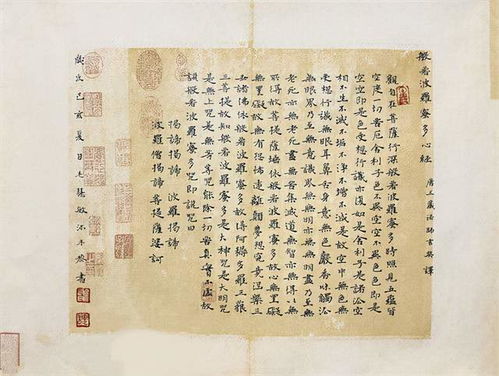 般若波羅蜜多心經
唐三藏法師玄奘譯
觀自在菩薩行深般若波羅蜜多時照見五蘊皆
空度一切苦厄舍利子色不異空空不異色色即是
空空即是色受想行識亦復如是舍利子是諸法空
相不生不滅不垢不淨不增不減是故空中無色無
受想行識無眼耳鼻舌身意無色聲香味觸法
無眼界乃至無意識界無無明亦無無明盡乃至無
老死亦無老死盡無苦集滅道無智亦無得以無
所得故菩提薩埵依般若波羅蜜多故心無罣礙
無罣礙故無有恐怖遠離顛倒夢想究竟涅槃三
世諸佛依般若波羅蜜多故得阿耨多羅三藐
三菩提故知般若波羅蜜多是大神咒是大明咒
是無上咒是無等等咒能除一切苦真實不虛故
說般若波羅蜜多咒即說咒曰
揭諦揭諦 波羅揭諦
波羅僧揭諦 菩提薩婆訶
歲次己亥夏日毛敏沐手敬書